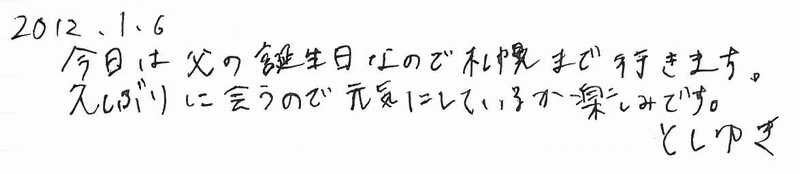 2012.1.6
今日は父の誕生日なので札幌まで行きます。
久しぶりに会うので元気にしているか楽しみです。
としゆき